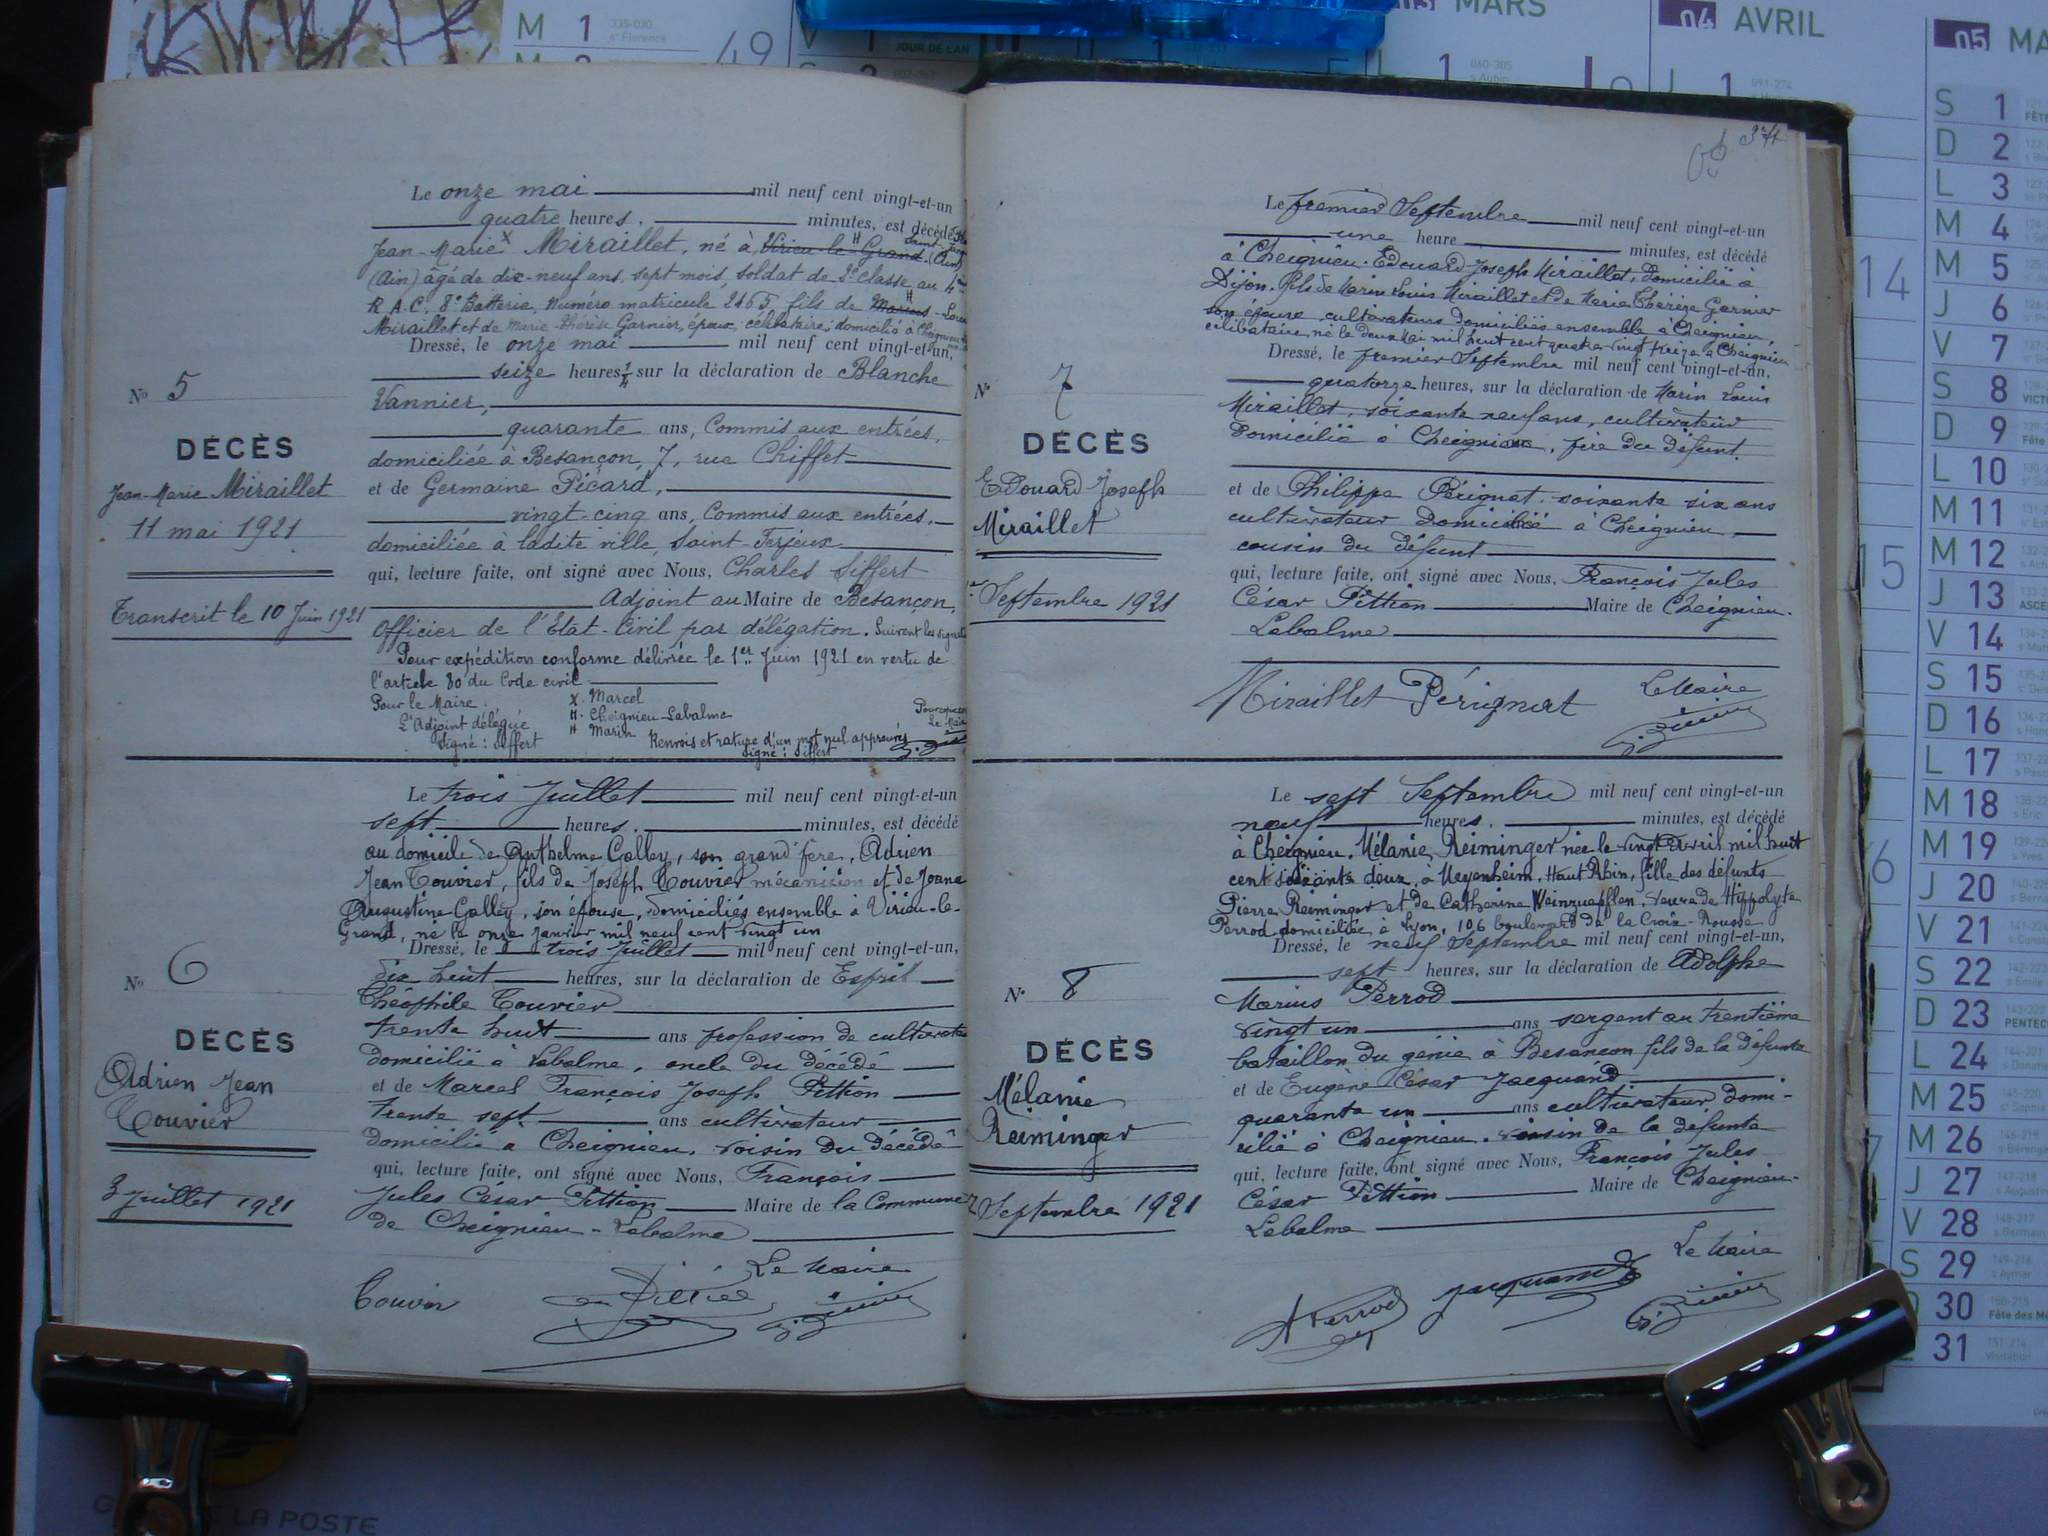 M 1 335-030
sᵉ Florence
49
V 1 JOUR DE L'AN
03 MARS
L 1 060-305
s Aubin
04 AVRIL
J 1 091-274
05 MA
Le onze mai mil neuf cent vingt-et-un
quatre heures, minutes, est décédé
Jean-Marie X Miraillet, né à Virieu-le-Grand (Ain)
(Ain) âgé de dix-neuf ans, sept mois, soldat de 2e classe au 4ème
R.A.C. 8e Batterie, Numéro matricule 2465, fils de Marius-Louis
Miraillet et de Marie-Thérèse Garnier, époux, célibataire; domicilié à Cheignieu
Dressé, le onze mai mil neuf cent vingt-et-un,
seize heures 1/4 sur la déclaration de Blanche
Nº 5
Vannier,
quarante ans, Commis aux entrées,
DÉCÈS
domiciliée à Besançon, 7, rue Chifflet
Jean-Marie Miraillet
et de Germaine Picard,
11 mai 1921
vingt-cinq ans, Commis aux entrées,
domiciliée à ladite ville, Saint-Ferjeux
qui, lecture faite, ont signé avec Nous, Charles Siffert
Transcrit le 10 Juin 1921
Adjoint au Maire de Besançon,
Officier de l'Etat-Civil par délégation. Suivent les signat
Pour expédition conforme délivrée le 1er Juin 1921 en vertu de
l'article 80 du Code civil
Pour le Maire.
L'Adjoint délégué
Signé : Siffert
X. Marcel
H. Cheignieu-Labalme
H Marin
Renvois et rature d'un mot nul approuvés
Signé : Siffert
Le trois Juillet mil neuf cent vingt-et-un
sept heures, minutes, est décédé
au domicile de Anthelme Galley, son grand'père, Adrien
Jean Touvier, fils de Joseph Touvier mécanicien et de Joana
Augustine Galley, son épouse, domiciliés ensemble à Virieu-le-
Grand, né le onze janvier mil neuf cent vingt un
Dressé, le trois Juillet mil neuf cent vingt-et-un,
Nº 6
dix huit heures, sur la déclaration de Esprit
Théophile Touvier
trente huit ans profession de cultivateur
DÉCÈS
domicilié à Labalme, oncle du décédé
Adrien Jean
Touvier
et de Marcel François Joseph Pittion
trente sept ans cultivateur
domicilié à Cheignieu, voisin du décédé
qui, lecture faite, ont signé avec Nous, François
3 Juillet 1921
Jules César Pittion Maire de la Commune
de Cheignieu-Labalme
Le Maire
Touvier
Le premier Septembre mil neuf cent vingt-et-un
une heure minutes, est décédé
à Cheignieu. Edouard Joseph Miraillet, domicilié à
Dijon. fils de Marin Louis Miraillet et de Marie Thérèze Garnier
son épouse, cultivateurs domiciliés ensemble à Cheignieu,
célibataire, né le deux Mai mil huit cent quatre vingt treize à Cheignieu
Dressé, le premier Septembre mil neuf cent vingt-et-un,
Nº 7
quatorze heures, sur la déclaration de Marin Louis
Miraillet, soixante neuf ans, cultivateur
DÉCÈS
domicilié à Cheignieu, père du défunt.
Edouard Joseph
Miraillet
et de Philippe Pérignat soixante six ans
cultivateur domicilié à Cheignieu
cousin du défunt
qui, lecture faite, ont signé avec Nous, François Jules
Septembre 1921
César Pittion Maire de Cheignieu-
Labalme
Miraillet Pérignat Le Maire
Le sept Septembre mil neuf cent vingt-et-un
neuf heures, minutes, est décédé
à Cheignieu. Mélanie Reiminger née le vingt avril mil huit
cent soixante deux, à Meyenheim, Haut Rhin, fille des défunts
Pierre Reiminger et de Catherine Weinzaepflen, veuve de Hippolyte
Perrod domiciliée à Lyon, 106 boulevard de la Croix-Rousse
Dressé, le neuf Septembre mil neuf cent vingt-et-un,
Nº 8
sept heures, sur la déclaration de Adolphe
Marius Perrod
vingt un ans sergent au trentième
DÉCÈS
bataillon du génie à Besançon fils de la défunte
Mélanie
Reiminger
et de Eugène César Jacquand
quarante un ans cultivateur domi-
cilié à Cheignieu, voisin de la défunte
qui, lecture faite, ont signé avec Nous, François Jules
7 Septembre 1921
César Pittion Maire de Cheignieu-
Labalme
Le Maire
APerrod Jacquand
S 1
D 2
L 3
M 4
M 5
J 6
V 7
S 8
D 9
L 10
M 11
M 12
J 13
V 14
S 15
D 16
L 17
M 18
M 19
J 20
V 21
S 22
D 23
L 24
M 25
M 26
J 27
V 28
S 29
30
31
14
15
LA POSTE